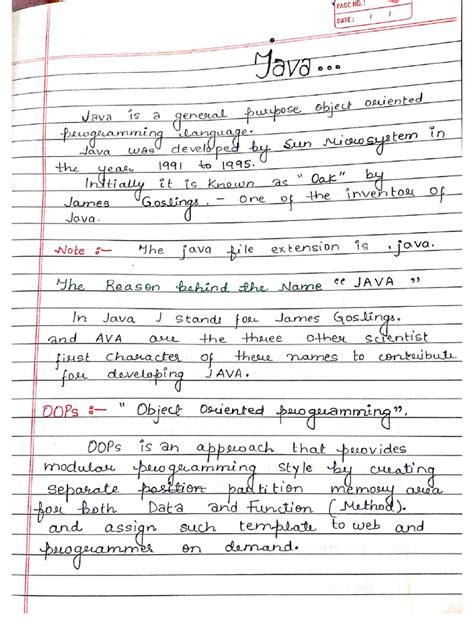 PAGE NO.:
DATE: / /
Java...
Java is a general purpose object oriented
programming language.
Java was developed by Sun Microsystem in
the year 1991 to 1995.
Initially it is known as "Oak" by
James Goslings. - One of the inventor of
Java.
Note :- The java file extension is .java.
The Reason behind the Name "JAVA"
In Java J stands for James Goslings.
and AVA are the three other scientist
first character of there names to contribute
for developing JAVA.
OOPs :- "Object Oriented programming".
OOPs is an approach that provides
modular programming style by creating
separate position partition memory area
for both Data and Function (Method).
and assign such template to web and
programmer on demand.